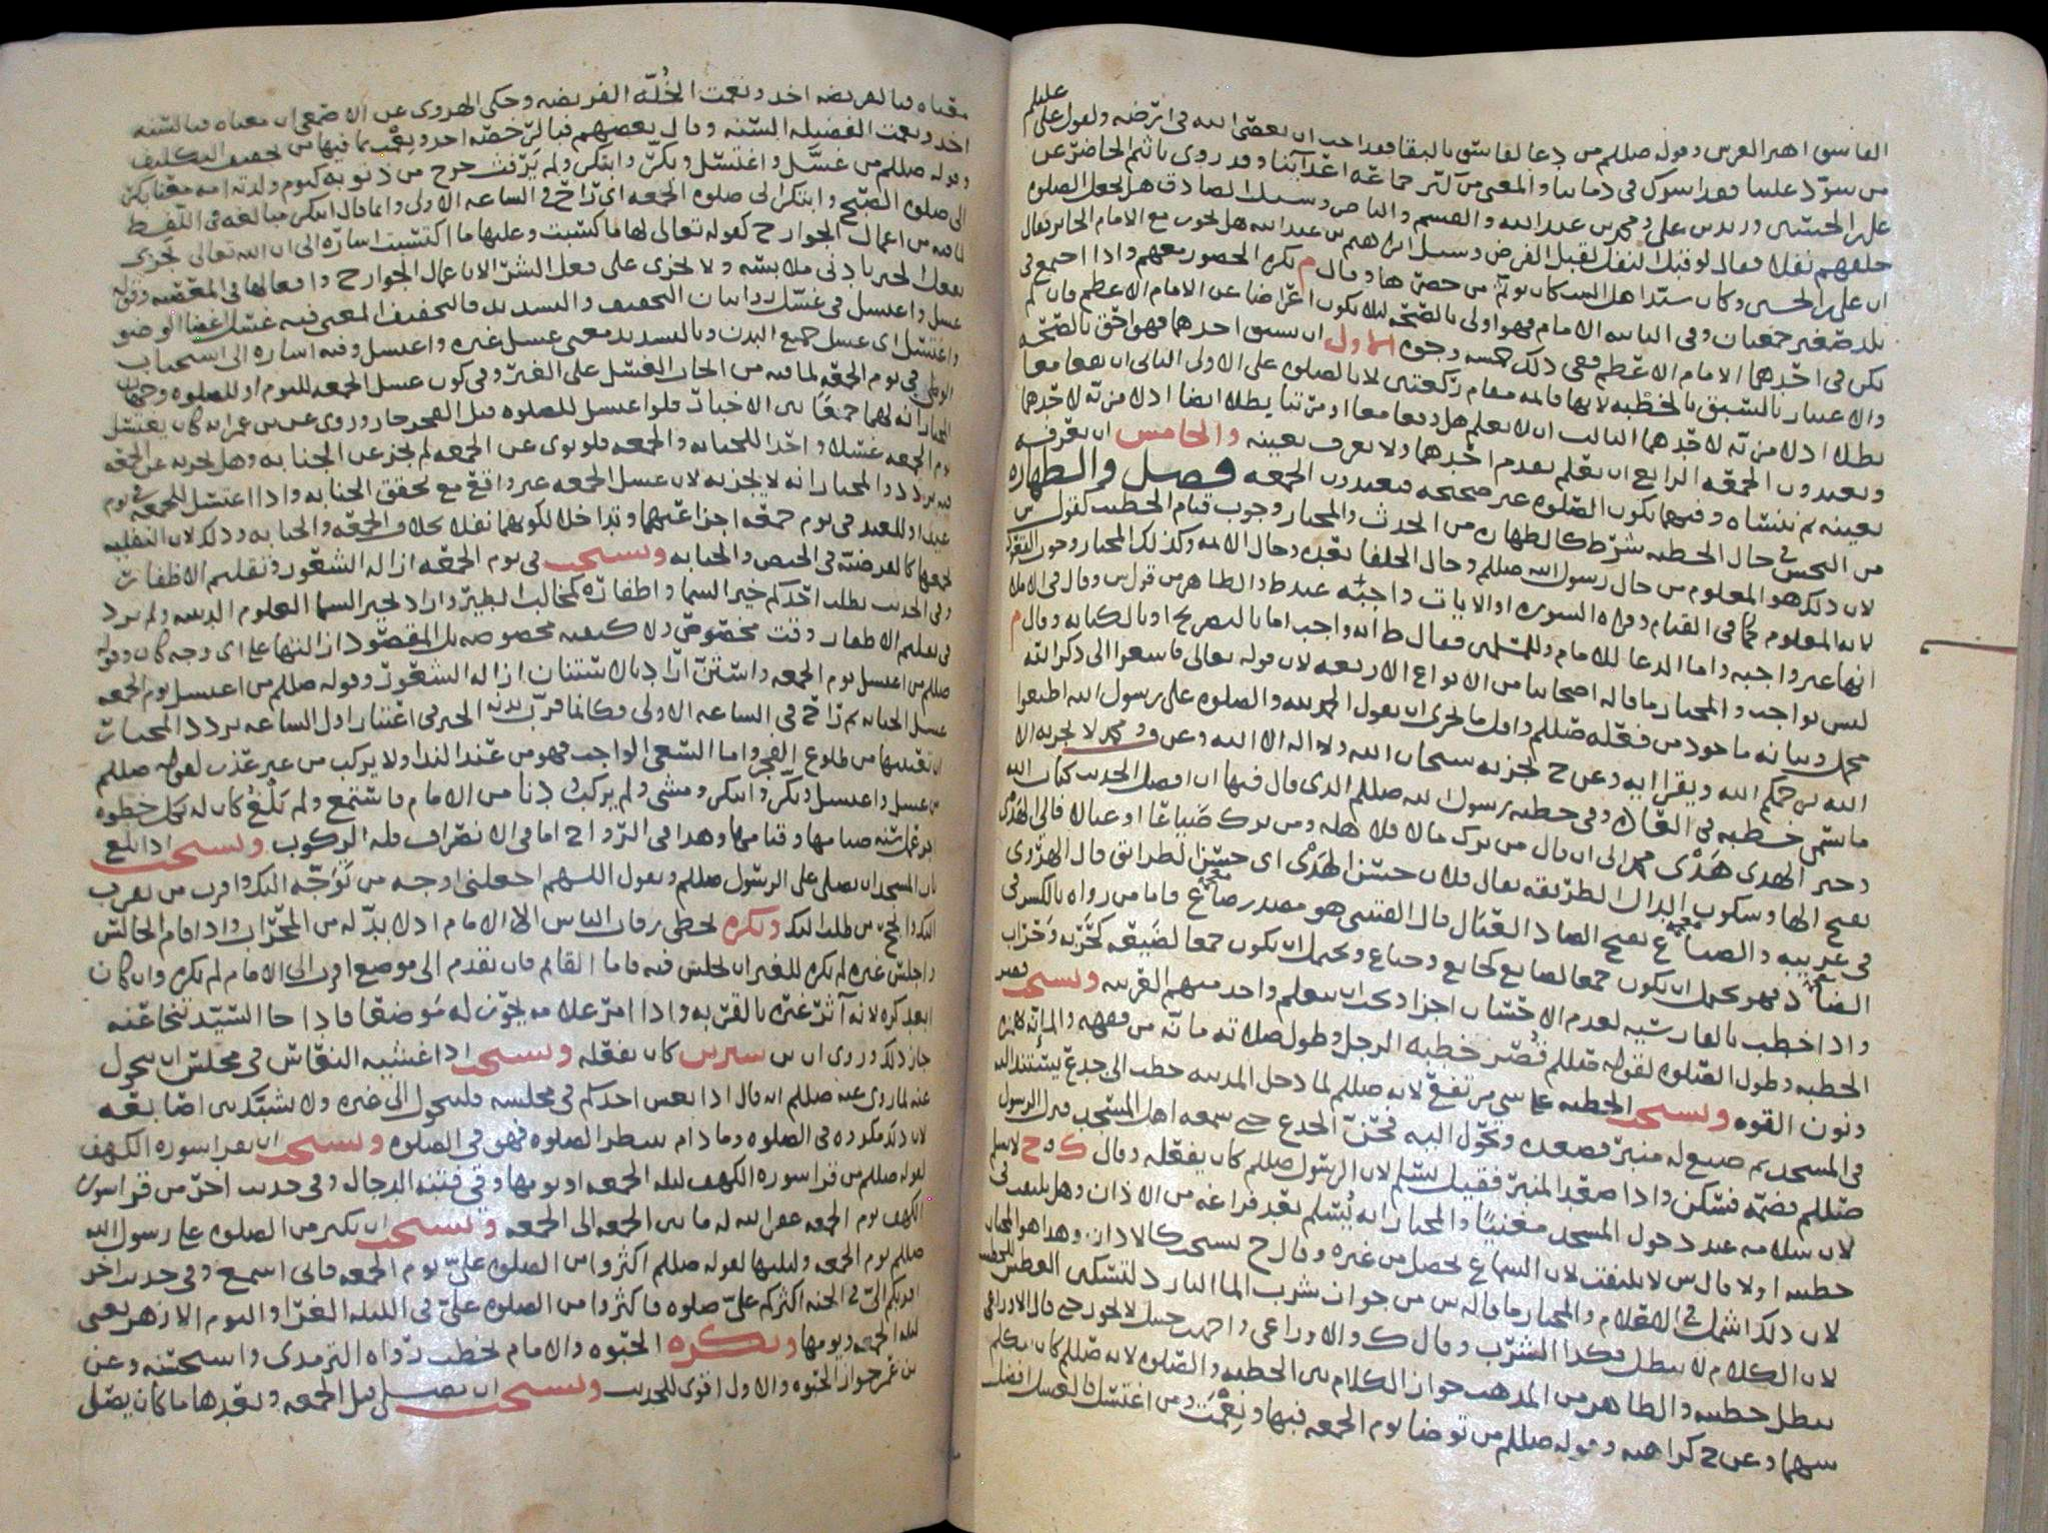 الفاسق اهتز العرش وقوله صللم من دعا لفاسق بالبقا فقد احب ان يعصى الله في ارضه ولقول علي عليلم
من سوّد علينا فقد اشرك في دمائنا والمعنى من كثر جماعة اعدائنا وقد روي
على الحسين وزيد بن علي ومحمد بن عبدالله والقسم والناصر وسئل الصادق هل يجعل الصلوه
خلفهم نفلا فقال لو قبل النفل لقبل الفرض وسئل ابراهيم بن عبدالله هل يجوز مع الامام الجائر فقال
ان علي بن الحسين وكان سيد اهل البيت كان من حضرها وقال م تكره الحضور معهم واذا اجتمع في
بلد صغير جمعتان وفي الثانيه الامام فهو اولى بالصحه لئلا يكون اعتراضا عن الامام الاعظم فان لم
يكن في احدهما الامام الاعظم ففي ذلك خمسه وجوه الاول ان يسبق احدهما فهو احق بالصحه
والاعتبار بالسبق بالخطبه لانها قائمه مقام ركعتين لا بالصلوه على الاولى الثاني ان يقعا معا
بطلا اذ لا مزيه لاحدهما الثالث ان لا يعلم هل وقعا معا او مرتبا بطلا ايضا اذ لا مزيه لاحدهما
ويعيدون الجمعه الرابع ان يعلم تقدم احدهما ولا يعرف بعينه والخامس ان يعرف
بعينه ثم نتنساه وفيهما يكون الصلوه غير صحيحه فيعيدون الجمعه فصل والطهاره
من النجس في حال الخطبه شرط كالطهاره من الحدث والمختار وجوب قيام الخطيب كقول ش
لان ذلك هو المعلوم من حال رسول الله صللم وحال الخلفا بعده وحال الائمه وكذلك المختار وجوب القعود
لانه المعلوم كما في القيام وقراه السوره او الايات واجبه عند ط والظاهر من قول ش وقال في الاملا
انها غير واجبه واما الدعا للامام وللمسلمين فقال ط انه واجب اما بالتصريح او بالكنايه وقال م
ليس بواجب والمختار ما قاله اصحابنا من الانواع الاربعه لان قوله تعالى فاسعوا الى ذكر الله
مجمل وبيانه ماخوذ من فعله صللم واقل ما يجزي ان يقول الحمد لله والصلوه على رسول الله اطيعوا
الله يرحمكم الله ويقرا ايه وعن ح يجزيه سبحان الله ولا اله الا الله وعن و ومحمد لا يجزيه الا
ما يسمى خطبه في العاده وفي خطبه رسول الله صللم الذي قال فيها ان افضل الحديث كتاب الله
وخير الهدى هَدْى محمد الى ان قال من ترك مالا فلاهله ومن ترك ضَياعًا او عيالا فالي الهَدْى
بفتح الها وسكون الدال الطريقه يقال فلان حسن الهَدْى اي حسن الطرائق قال الهروي
في غريبه والضياع بفتح الضاد العيال قال القتيبي هو مصدر ضاع فاما من رواه بالكسر في
الضاد فهو يحتمل ان يكون جمعا لضايع كجايع وجياع ويحتمل ان يكون جمعا لضيعه
واذا خطب بالفارسيه لعدم الاحتساب اجزا ويجب ان يتعلم واحد منهم العربيه ويستحب قصر
الخطبه وطول الصلوه لقوله صللم قصر خطبه الرجل وطول صلاته مائنه من فقهه
ودون القوه ويستحب الخطبه على شي مرتفع لانه صللم لما دخل المدينه خطب الى جذع يستند اليه
في المسجد ثم صنع له منبر فصعده وتحول اليه فحن الجذع حتى سمعه اهل المسجد فنزل الرسول
صللم فضمه فسكن واذا صعد المنبر فقيل يسلم لان الرسول صللم كان يفعله وقال ك وح لا يسلم
لان سلامه عند دخول المسجد مغنيًا والمختار انه يُسلم بعد فراغه من الاذان وهل يلتفت في
خطبته اولا قال ش لا يلتفت لان السماع يحصل من غيره وقال ح يستحب كالاذان وهذا هو المختار
لان ذلك اشمل في الاعلام والمختار ما قاله ش من جواز شرب الما البارد لتسكين العطش للخطيب
لان الكلام لا يبطل فكذا الشرب وقال ك والاوزاعي واحمد بن حنبل لا يجوز حتى قال الاوزاعي
تبطل خطبته والظاهر من المذهب جواز الكلام بين الخطبه والصلوه لانه صللم كان يتكلم
بينهما وعن ح كراهته وقوله صللم من توضا يوم الجمعه فبها ونِعمت ومن اغتسل فالغسل افضل
معناه فبالفريضه اخذ ونعمت الخُلّه الفريضه وحكى الهروي عن الاصمعي ان معناه فبالسنه
اخذ ونعمت الفضيله السنه وقال بعضهم فبالرخصه اخذ ونِعْمت بما فيها من تخفيف التكليف
وقوله صللم من غسّل واغتسل وبكّر وابتكر ولم يرفث خرج من ذنوبه كيوم ولدته امه معنا بكر
الى صلوه الصبح وابتكر الى صلوه الجمعه اي راح في الساعه الاولى وانما قال ابتكر مبالغه في اللفظ
لما فيه من اعمال الجوارح كقوله تعالى لها ما كسبت وعليها ما اكتسبت اشاره الى ان الله تعالى يجزي
بفعل الخير بادنى ملابسه ولا يجزي على فعل الشر الا باعمال الجوارح وافعالها في المعصيه وقوله
غسل واغتسل في غسّل روايتان التخفيف والتشديد فالتخفيف المعنى فيه غسل اعضا الوضو
واغتسل اي غسل جميع البدن وبالتشديد معنى غسل غيره واغتسل وفيه اشاره الى استحباب
الوطي في يوم الجمعه لما فيه من اكثار الغسل على الغير وفي كون غسل الجمعه لليوم او للصلوه وجهان
المختار انه لهما جمعًا بين الاخبار فلو اغتسل للصلوه قبل الفجر جاز وروي عن بن عمر انه كان يغتسل
يوم الجمعه غسلا واحدا للجنابه والجمعه فلو نوى عن الجمعه لم يجز عن الجنابه وهل يجزيه عن الجمعه
فيه تردد والمختار انه لا يجزيه لان غسل الجمعه غير واقع مع تحقق الجنابه واذا اغتسل للجمعه في يوم
عيد او للعيد في يوم جمعه اجزا عنهما وتداخلا لكونهما نفلا بخلاف الجمعه والجنابه وذلك لان النفليه
تجمعها كالفرضيه في الحيض والجنابه ويستحب في يوم الجمعه ازاله الشعور وتقليم الاظفار
وفي الحديث يطلب احدكم خير السما واظفاره كمخالب الطير واراد بخير السما العلوم الدينيه ولم يرد
في تقليم الاظفار وقت مخصوص ولا كيفيه مخصوصه بل المقصود ازالتها على اي وجه كان وقوله
صللم من اغتسل يوم الجمعه واستنّ اراد بالاستنان ازاله الشعور وقوله صللم من اغتسل يوم الجمعه
غسل الجنابه ثم راح في الساعه الاولى فكانما قرب بدنه الخبر في اعتبار اول الساعه تردد المختار
ان تعتبرها من طلوع الفجر واما السعي الواجب فهو من عند الندا ولا يركب من غير عذر لقوله صللم
من غسل واغتسل وبكّر وابتكر ومشى ولم يركب ودنا من الامام فاستمع ولم يَلْغُ كان له بكل خطوه
اجر عمل سنه صيامها وقيامها وهذا في الرواح اما في الانصراف فله الركوب ويستحب اذا بلغ
باب المسجد ان يصلي على الرسول صللم ويقول اللهم اجعلني اوجه من تَوَجّه اليك واقرب من تقرب
اليك وانجح من طلب اليك ويكره تخطي رقاب الناس الا الامام اذ لا بدّ له من المحراب واذا قام الجالس
واجلس غيره لم يكره للغير ان يجلس فيه فاما القائم فان تقدم الى موضع اقرب الى الامام لم يكره وان كان
ابعد كره لانه آثر غيره بالقربه واذا امر غلامه يحوز له موضعا فاذا جا السيد تنحا عنه
جاز ذلك وروي ان بن سيرين كان يفعله ويستحب اذا غشيه النعاس في مجلس ان يتحول
عنه لما روي عنه صللم انه قال اذا نعس احدكم في مجلسه فليتحول الى غيره ولا يشبك بين اصابعه
لان ذلك مكروه في الصلوه وما دام ينتظر الصلوه فهو في الصلوه ويستحب ان يقرا سوره الكهف
لقوله صللم من قرا سوره الكهف ليله الجمعه او يومها وقي فتنه الدجال وفي حديث اخر من قرا سوره
الكهف يوم الجمعه غفر الله له ما بين الجمعه الى الجمعه ويستحب ان يكثر من الصلوه على رسول الله
صللم يوم الجمعه وليلتها لقوله صللم اكثروا من الصلوه عليّ يوم الجمعه فاني اسمع وفي حديث اخر
اقربكم اليّ في الجنه اكثركم عليّ صلوه فاكثروا من الصلوه عليّ في الليله الغرّا واليوم الازهر يعني
ليله الجمعه ويومها ويكره الحبوه والامام يخطب رواه الترمذي واستحسنه وعن
بن عمر جواز الحبوه والاول اقوى للحديث ويستحب ان يصلي قبل الجمعه وبعدها ما كان يصلي